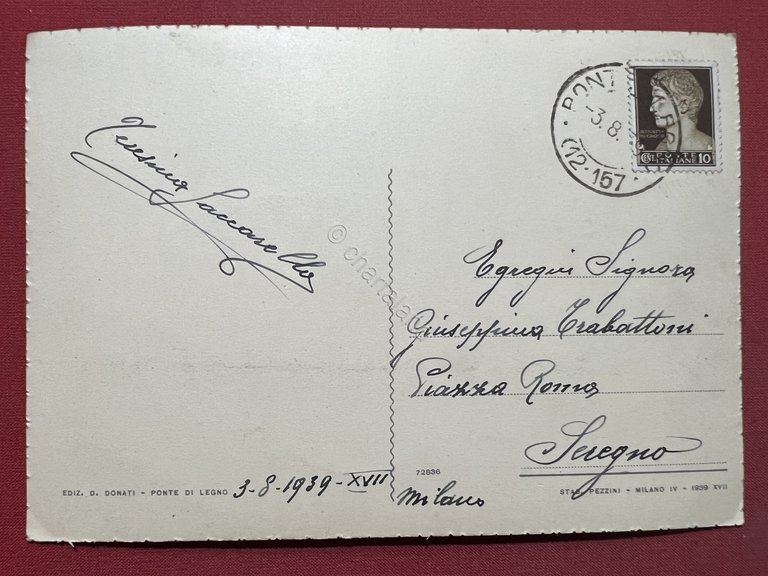 PONT
-3.8.
(12-157
POSTE
ITALIANE 10
Teresina Saccarello
© chartaland
Egregia Signora
Giuseppina Trabattoni
Piazza Roma
Seregno
Milano
72836
EDIZ. D. DONATI - PONTE DI LEGNO
3-8-1939-XVII
STAB. PEZZINI - MILANO IV - 1939-XVII